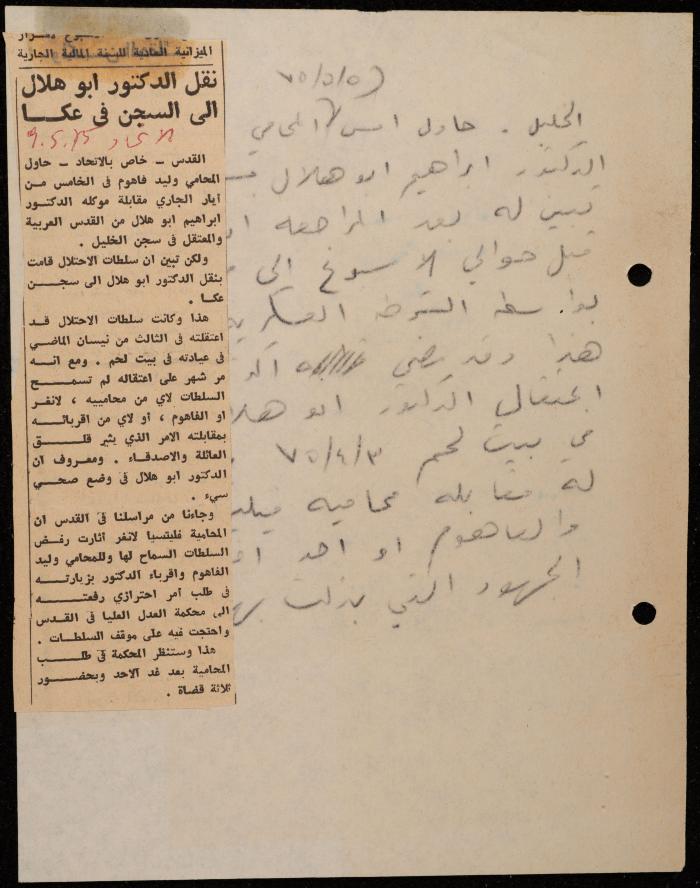 الميزانية العادية للسنة المالية الجارية
نقل الدكتور ابو هلال
الى السجن في عكــا
الاتحاد 9.5.75
القدس ــ خاص بالاتحاد ــ حاول
المحامي وليد فاهوم في الخامس من
أيار الجاري مقابلة موكله الدكتور
ابراهيم ابو هلال من القدس العربية
والمعتقل في سجن الخليل .
ولكن تبين ان سلطات الاحتلال قامت
بنقل الدكتور ابو هلال الى سجــن
عكـا .
هذا وكانت سلطات الاحتلال قــد
اعتقلته في الثالث من نيسان الماضي
في عيادته في بيت لحم . ومع انــه
مر شهر على اعتقاله لم تسمــح
السلطات لاي من محامييه ، لانغر
او الفاهوم ، أو لاي من اقربائــه
بمقابلته الامر الذي يثير قلــق
العائلة والاصدقاء . ومعروف ان
الدكتور ابو هلال في وضع صحـي
سيء .
وجاءنا من مراسلنا في القدس ان
المحامية فليتسيا لانغر اثارت رفـض
السلطات السماح لها وللمحامي وليد
الفاهوم واقرباء الدكتور بزيارتــه
في طلب أمر احترازي رفعتــه
الى محكمة العدل العليا في القدس
واحتجت فيه على موقف السلطات .
هذا وستنظر المحكمة في طلــب
المحامية بعد غد الاحد وبحضــور
ثلاثة قضاة .
٧٥/٥/٥
الخليل . حاول امس المحامي
الدكتور ابراهيم ابو هلال
تبين له بعد المراجعه
قبل حوالي الاسبوع الى
بواسطة الشرطه العسكريه
هذا وقد مضى
اعتقال الدكتور ابو هلا
في بيت لحم ٧٥/٤/٣
له مقابله محاميه
والفاهوم او احد
الجهود التي بذلت